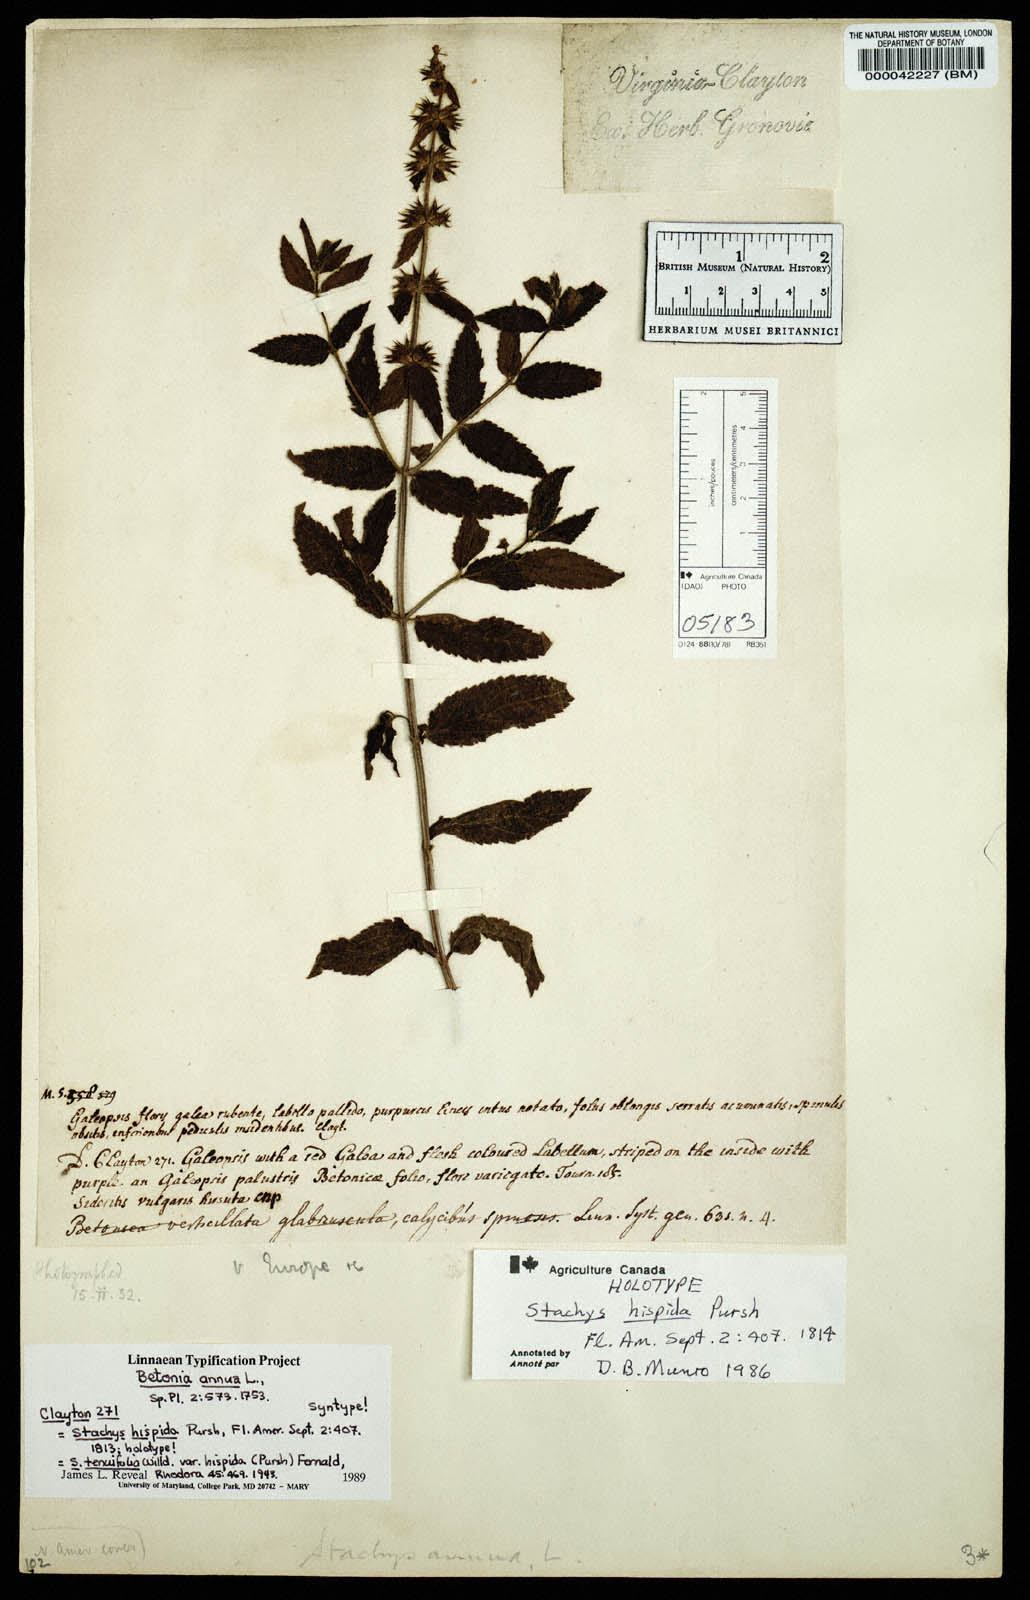 THE NATURAL HISTORY MUSEUM, LONDON
DEPARTMENT OF BOTANY
000042227 (BM)
Virginia Clayton
Ex. Herb. Gronovii
1 2
BRITISH MUSEUM (NATURAL HISTORY)
1 2 3 4 5
HERBARIUM MUSEI BRITANNICI
2 5
4
3
2
1
inches/pouces
centimeters/centimetres
Agriculture Canada
(DAO) PHOTO
05183
0124 88(10/78) RB351
M.S. 329
Galeopsis flory galea rubente, labello pallido, purpureis lineis intus notato, foliis oblongis serratis acuminatis, spinulis
obsitis, inferioribus Clayt.
D. Clayton 271. Galeopsis with a red Galea and flesh coloured Labellum, striped on the inside with
purple. an Galeopsis palustris Betonicæ folio, flore variegato. Tourn. 185.
Sideritis vulgaris hirsuta CBP
Betonica verticillata glabriuscula, calycibus spinosis. Linn. Syst. gen. 631. n. 4.
Photographed
15. 32.
v Europe
Agriculture Canada
HOLOTYPE
Stachys hispida Pursh
Fl. Am. Sept. 2:407. 1814
Annotated by
Annoté par
D. B. Munro 1986
Linnaean Typification Project
Betonia annua L.,
Sp. Pl. 2:573. 1753.
Clayton 271 Syntype!
= Stachys hispida Pursh, Fl. Amer. Sept. 2:407.
1813; holotype!
= S. tenuifolia Willd. var. hispida (Pursh) Fernald,
James L. Reveal Rhodora 45:469. 1943. 1989
University of Maryland, College Park, MD 20742 – MARY
N. Amer. cover)
102
Stachys annua, L.
3*